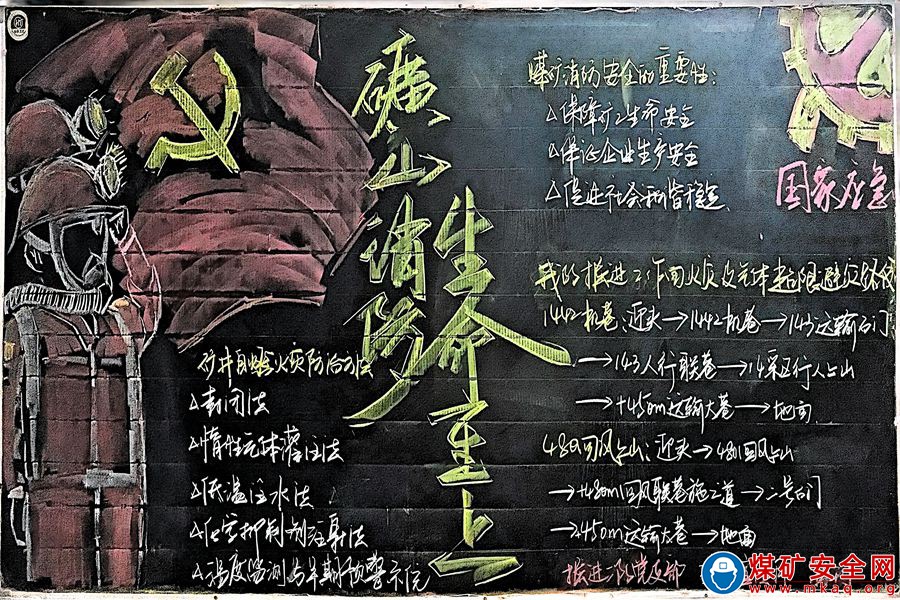 礦山消防
生命重于
矿井自燃火灾防治方法
△封闭法
△惰性气体灌注法
△低温注水法
△化学抑制剂注射法
△温度监测与早期预警系统
煤矿消防安全的重要性:
△保障矿工生命安全
△保证企业生产安全
△促进社会和谐稳定
国家应急
我队掘进工作面火灾及瓦斯超限避灾路线
1442机巷:迎头→1442机巷→143运输石门
→143人行联巷→14采区行人上山
→+450m运输大巷→地面
4801回风上山:迎头→4801回风上山
→+480m回风联巷施工道→二号石门
→+450m运输大巷→地面
党支部
煤矿安全网
www.mkaq.org